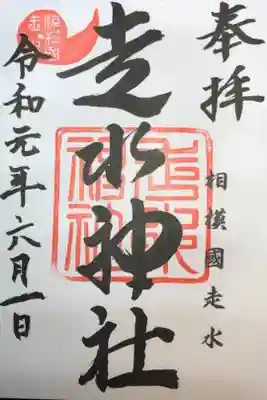 奉拝
相模國走水
走水神社
令和元年六月一日